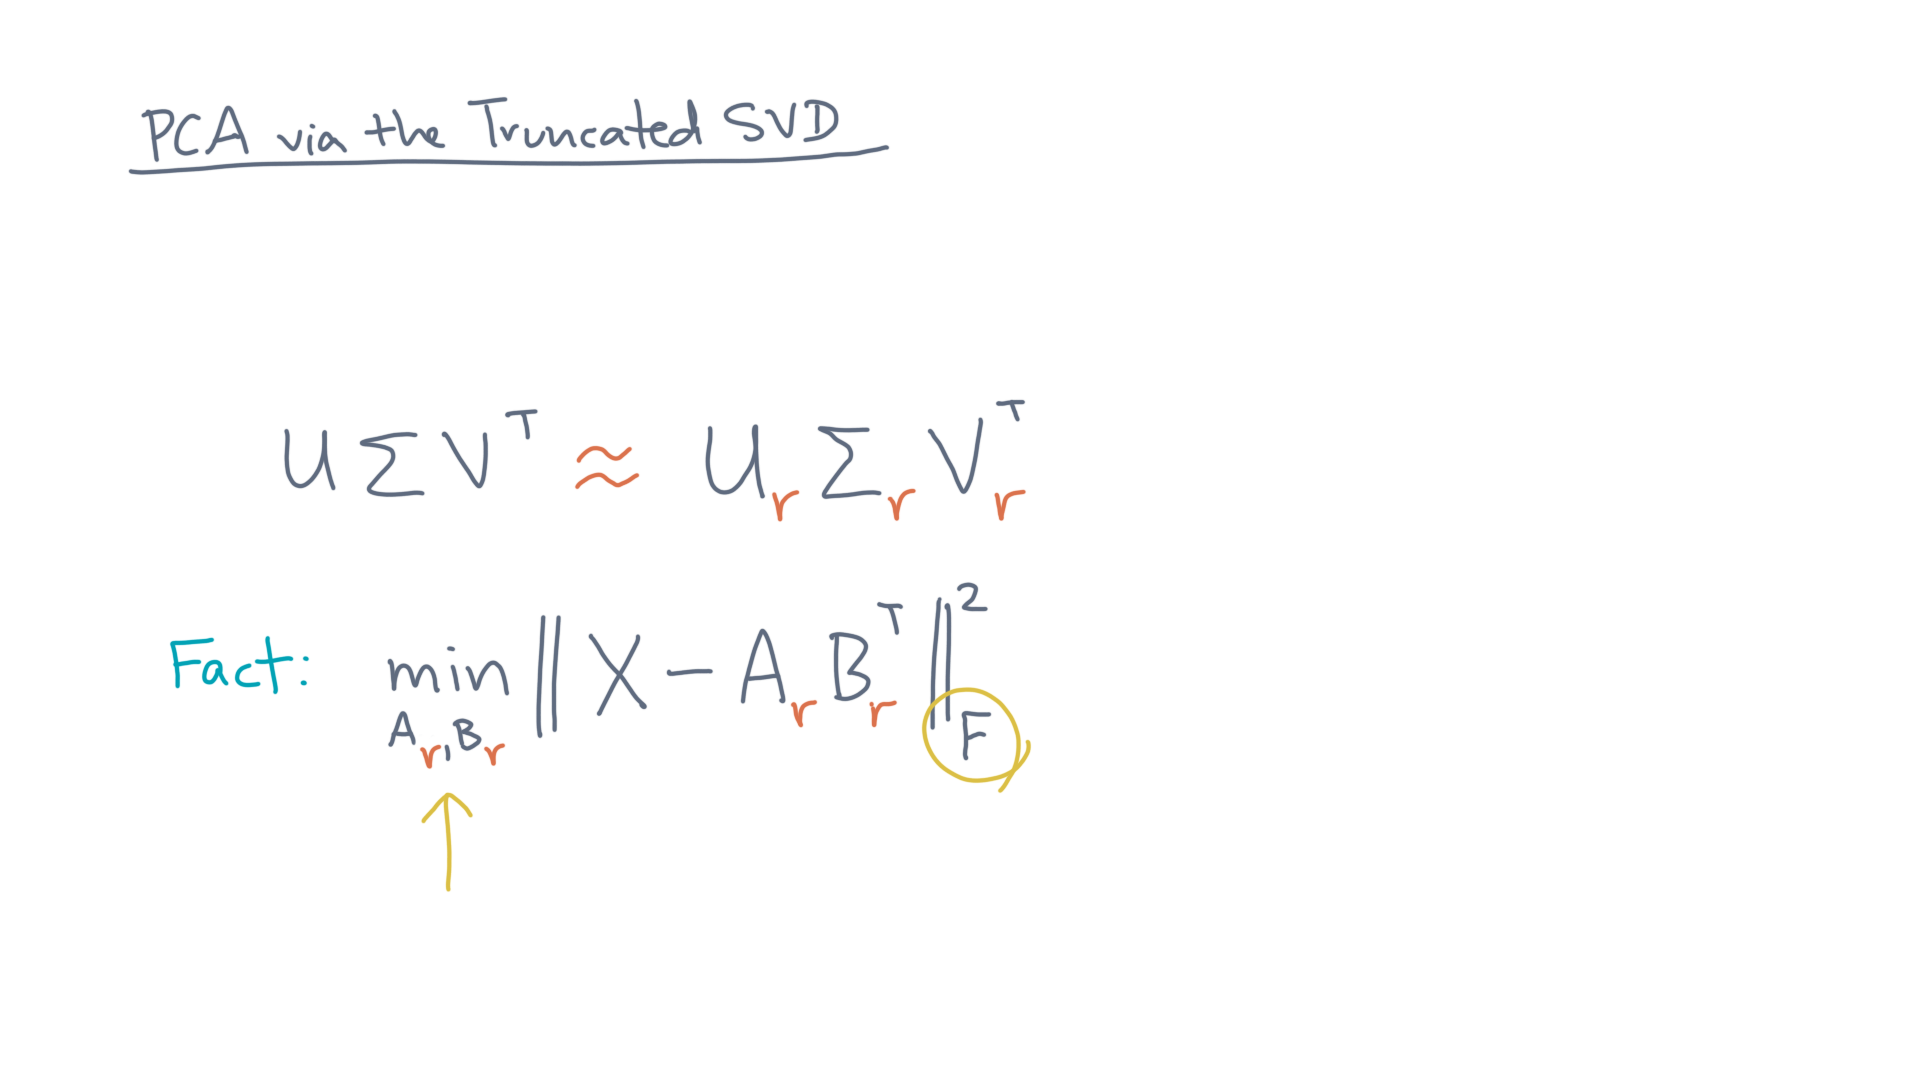 PCA via the Truncated SVD
U Σ V^T ≈ U_r Σ_r V_r^T
Fact: min_{A_r, B_r} ‖ X − A_r B_r^T ‖_F^2